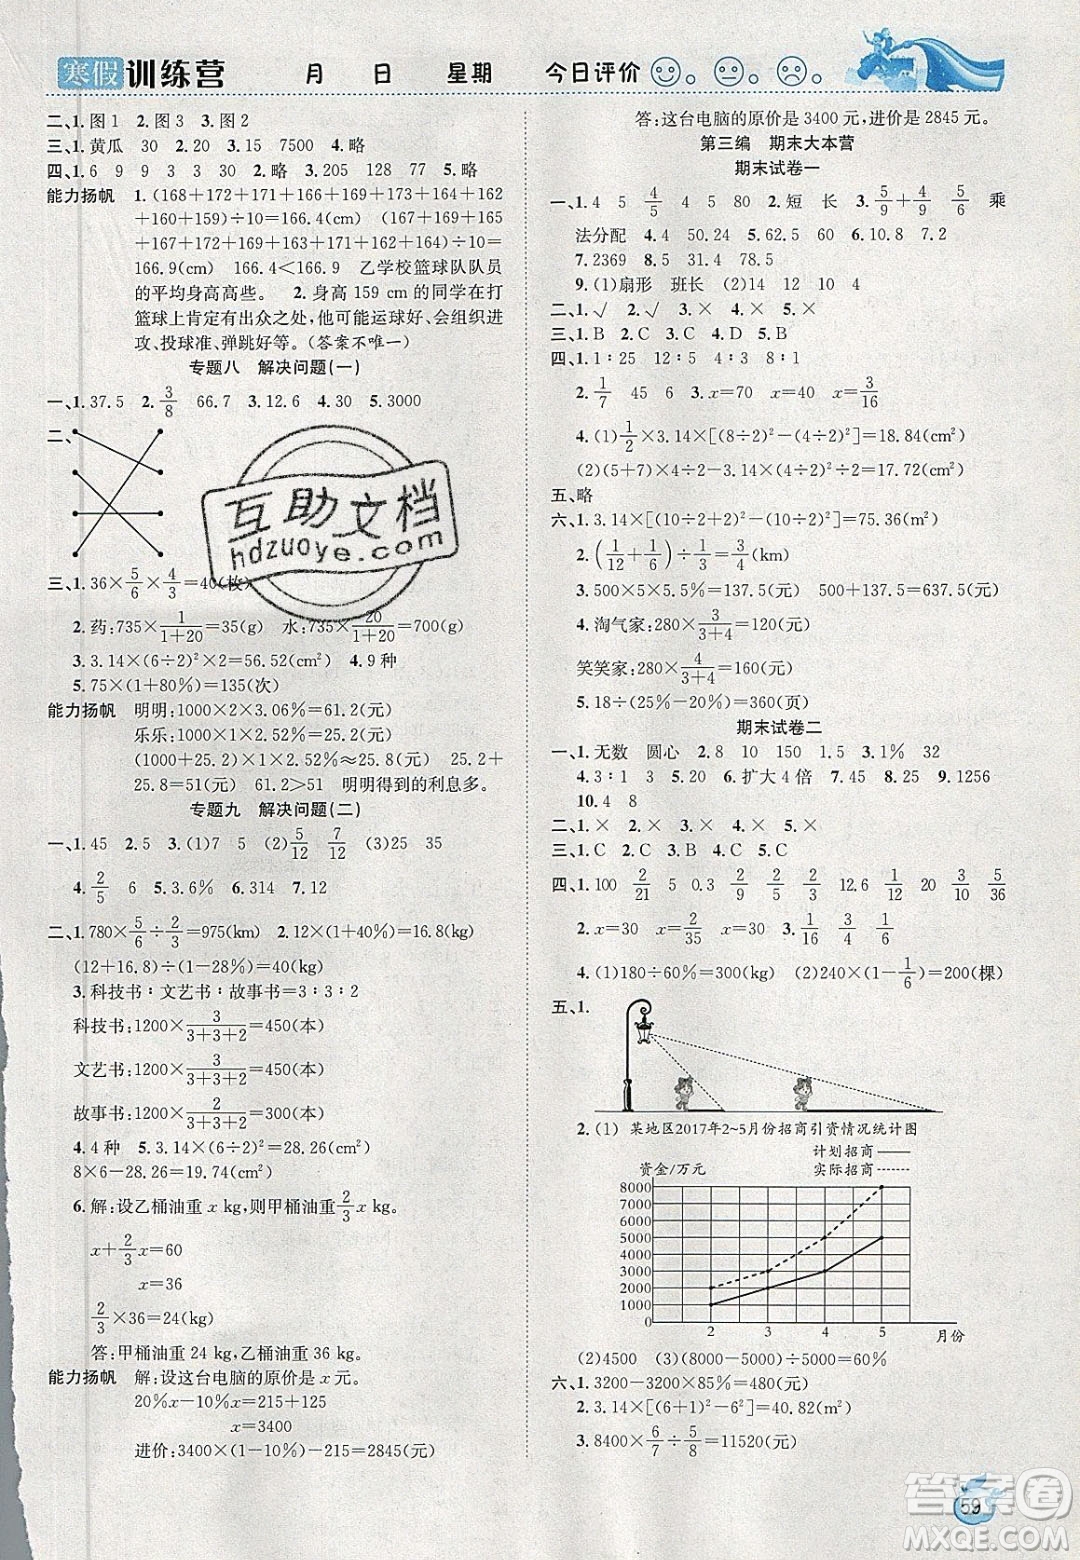 寒假训练营 月 日 星期 今日评价
二、1.图1 2.图3 3.图2
三、1.黄瓜 30 2.20 3.15 7500 4.略
四、1.6 9 9 3 3 30 2.略 3.205 128 4.略
能力扬帆 1.(168+172+171+166+171+164+162
+160+159)÷10=166.4(cm) (167+169+165
+167+165+164+160+162+173+177)÷10=
166.9(cm) 166.4<166.9 乙学校篮球队队员
的平均身高高些。 2.身高159 cm的同学在打
篮球上肯定有出众之处,他可能运球好,会组织进
攻、投球准、弹跳好等。(答案不唯一)
专题八 解决问题(一)
一、1.37.5 2.3/8 66.7 3.12.6 4.30 5.3000
二、
三、1.36×5/6×4/3=40(枚)
2.药:735×1/(1+20)=35(g) 水:735×20/(1+20)=700(g)
3.3.14×(6÷2)²×2=56.52(cm²) 4.9种
5.75×(1+80%)=135(次)
能力扬帆 明明:1000×2×3.06%=61.2(元)
乐乐:1000×1×2.52%=25.2(元)
(1000+25.2)×1×2.52%≈25.8(元) 25.2+
25.8=51(元) 61.2>51 明明得到的利息多。
专题九 解决问题(二)
一、1.45 2.5 3.(1)7 5 (2)5/12 7/12 (3)25 35
4.2/5 6 5.3.6% 6.314 7.12
二、1.780×5/6÷2/3=975(km) 2.12×(1+40%)=16.8(kg)
(12+16.8)÷(1-20%)=36(kg)
3.科技书∶文艺书∶故事书=3∶3∶2
科技书:1200×3/(3+3+2)=450(本)
文艺书:1200×3/(3+3+2)=450(本)
故事书:1200×2/(3+3+2)=300(本)
4.4种 5.3.14×(6÷2)²=28.26(cm²)
8×6-28.26=19.74(cm²)
6.解:设乙桶油重x kg,则甲桶油重2/3x kg。
x+2/3x=60
x=36
2/3×36=24(kg)
答:甲桶油重24 kg,乙桶油重36 kg。
能力扬帆 解:设这台电脑的原价是x元。
20%x-10%x=215+125
x=3400
进价:3400×(1-10%)-215=2845(元)
答:这台电脑的原价是3400元,进价是2845元。
第三编 期末大本营
期末试卷一
一、1.4 5 4/5 4 5 80 2.短 长 3.5/9+4/9 5/6 乘
法分配 4.4 50.24 5.62.5 60 6.10.2 7.2
7.2369 8.5 31.4 78.5
9.(1)扇形 班长 (2)14 12 10 4
二、1.√ 2.√ 3.× 4.× 5.×
三、1.B 2.C 3.C 4.D 5.B
四、1.1∶25 12∶5 4∶3 8∶1
2.1/7 45 6 3.x=70 x=40 x=3/16
4.(1)1/2×3.14×[(8÷2)²-(4÷2)²]=18.84(cm²)
(2)(5+7)×4÷2-3.14×(4÷2)²÷2=17.72(cm²)
五、略
六、1.3.14×[(10÷2+2)²-(10÷2)²]=75.36(m²)
2.(1/12+1/6)÷1/3=3/4(km)
3.500×5×5.5%=137.5(元) 500+137.5=637.5(元)
4.淘气家:280×3/(3+4)=120(元)
笑笑家:280×4/(3+4)=160(元)
5.18÷(25%-20%)=360(页)
期末试卷二
一、1.无数 圆心 2.8 10 150 1.5 3.1% 32
4.3∶1 5.3∶4 80 6.扩大4倍 7.45 8.25 9.1256
10.4 8
二、1.× 2.× 3.× 4.× 5.×
三、1.C 2.C 3.B 4.C 5.C
四、1.100 2/21 5 0.3 2/9 2/9 12.6 1/12 20 3/10 5/36
2.x=30 x=2/35 x=40 3.1/24 3/16 5/13
4.(1)180÷60%=300(m) (2)240×(1-1/6)=200(棵)
五、1.
2.(1) 某地区2017年2~5月份招商引资情况统计图
计划招商
资金/万元 实际招商
8000
7000
6000
5000
4000
3000
2000
1000
2 3 4 5 月份
(2)4500 (3)(8000-5000)÷5000=60%
六、1.3200-3200×85%=480(元)
2.3.14×[(6+1)²-6²]=40.82(m²)
3.8400×6/7÷5/8=11520(元)
互助文档
hdzuoye.com
59
答案圈
MXQE.COM